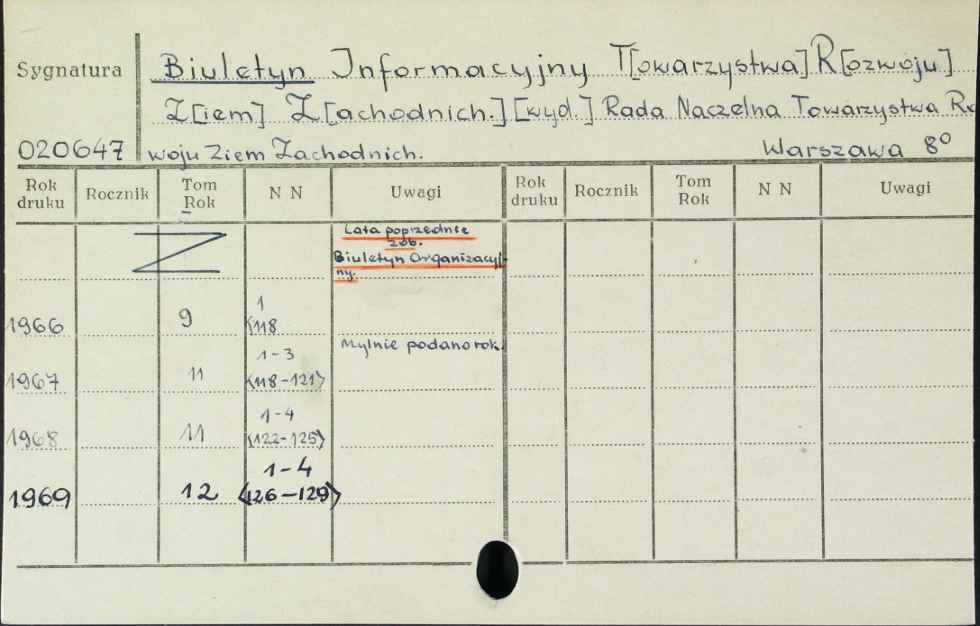 Sygnatura
Biuletyn Informacyjny T[owarzystwa] R[ozwoju]
Z[iem] Z[achodnich.] [wyd.] Rada Naczelna Towarzystwa Ro
020647 woju Ziem Zachodnich. Warszawa 8⁰
Rok druku Rocznik Tom Rok N N Uwagi Rok druku Rocznik Tom Rok N N Uwagi
Z
Lata poprzednie
zob.
Biuletyn Organizacyj-
ny.
1966 9 1 <118
Mylnie podano rok.
1967 11 1-3 <118-121>
1968 11 1-4 <122-125>
1969 12 1-4 <126-129>